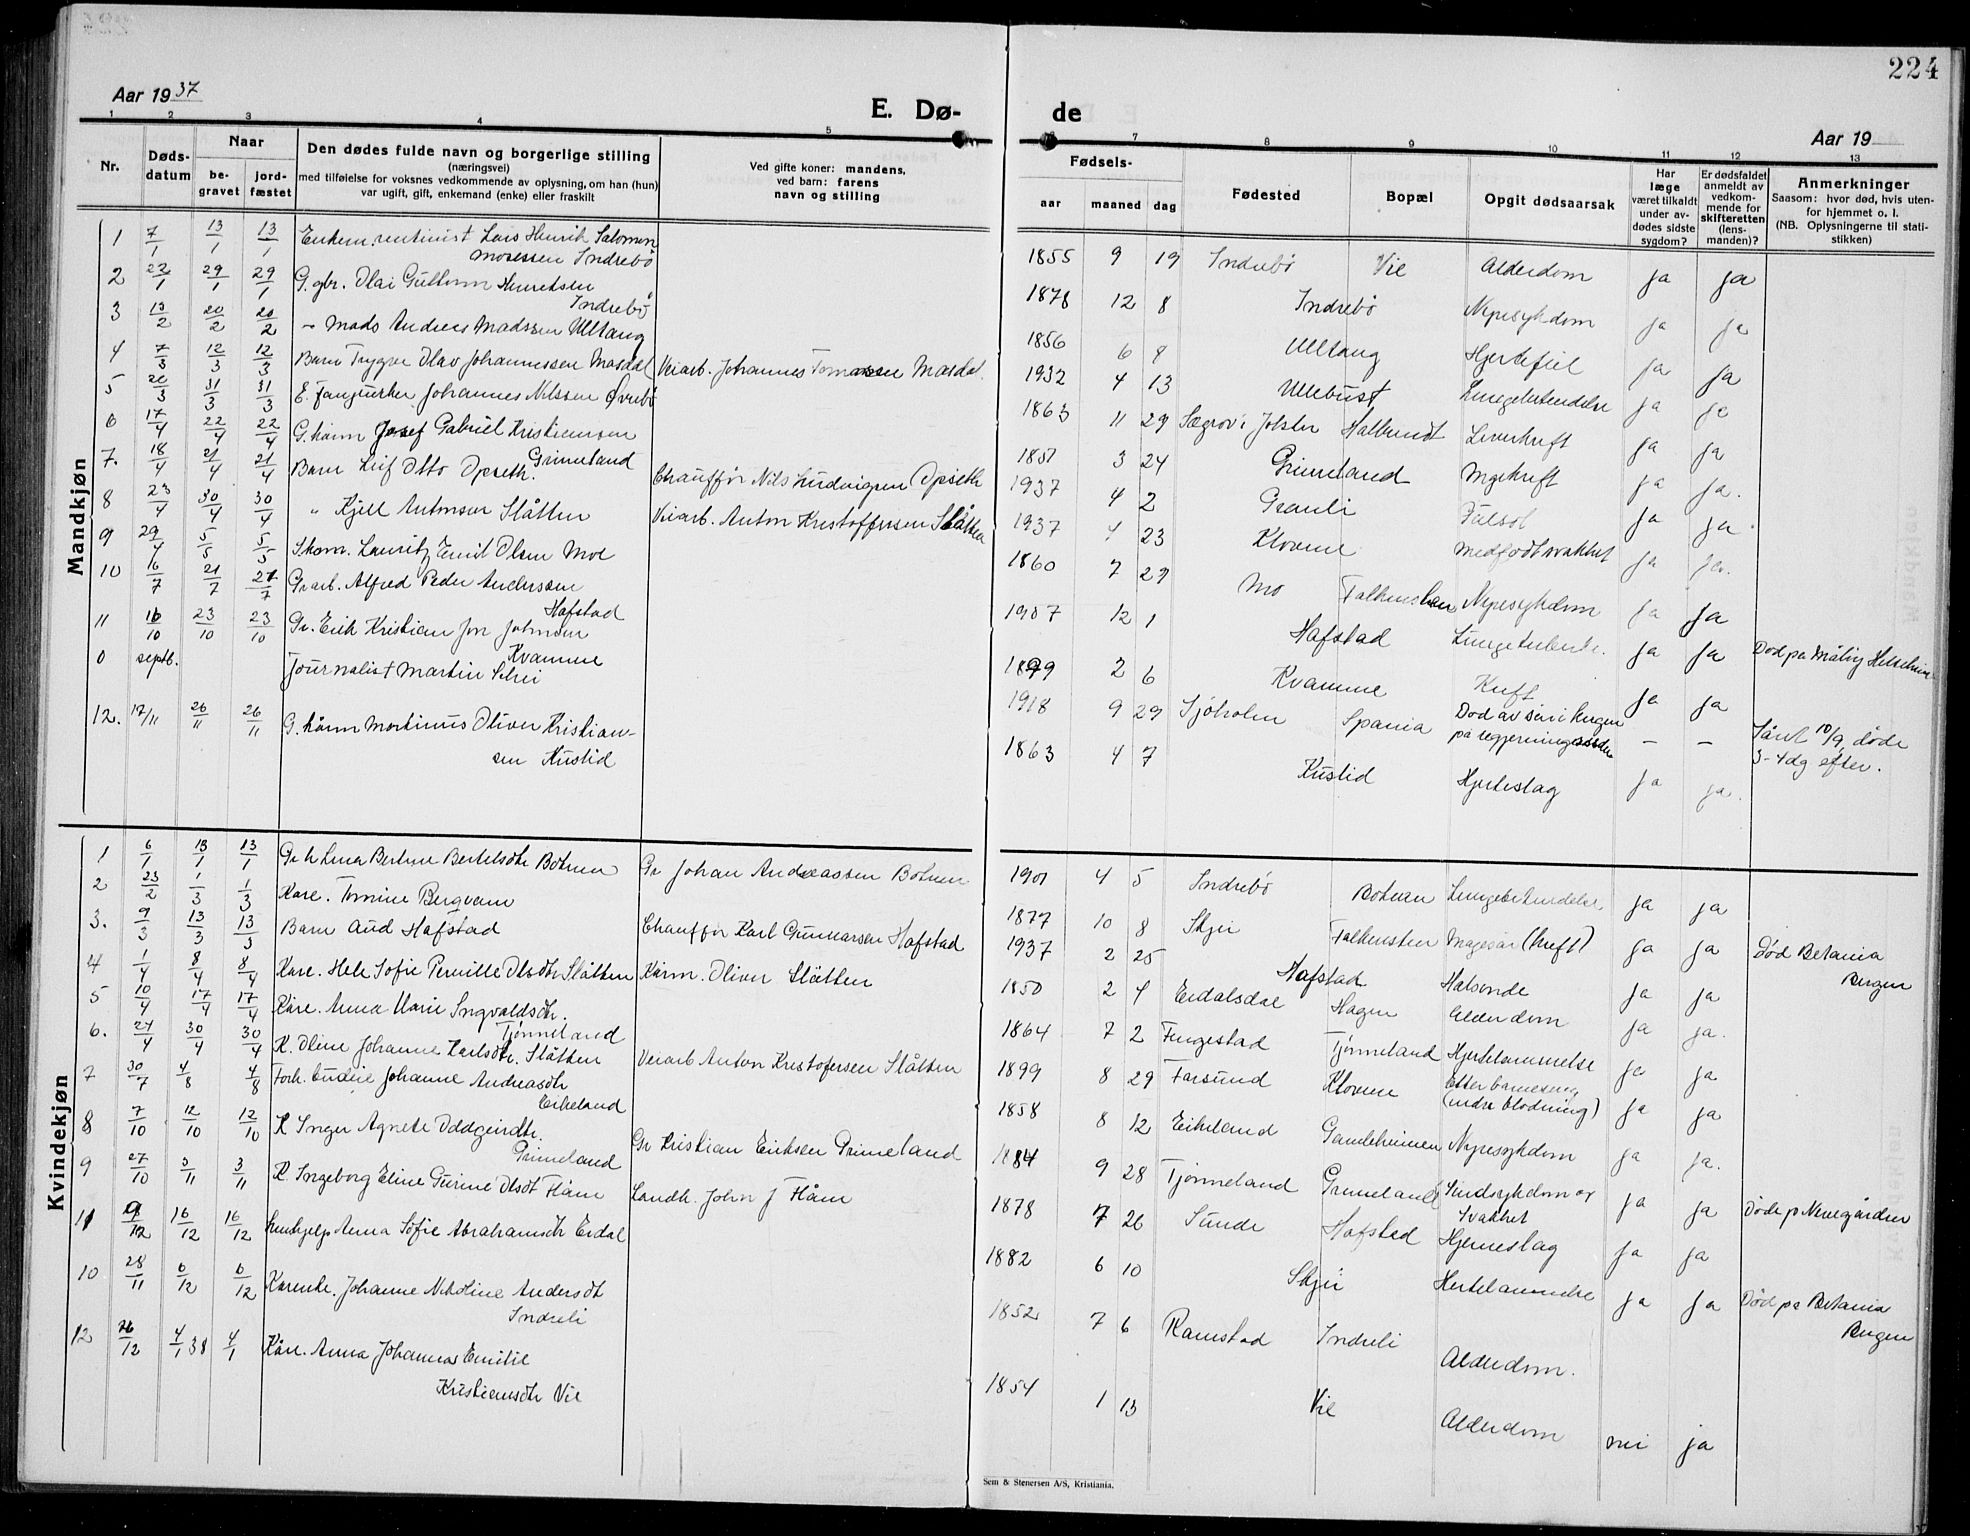 224
Aar 1937
E. Dø-
de
Aar 19
1 2 3 4 5 6 7 8 9 10 11 12 13
Nr.
Døds-
datum
Naar
be-
gravet
jord-
fæstet
Den dødes fulde navn og borgerlige stilling
(næringsvei)
med tilføielse for voksnes vedkommende av oplysning, om han (hun)
var ugift, gift, enkemand (enke) eller fraskilt
Ved gifte koner: mandens,
ved barn: farens
navn og stilling
Fødsels-
aar maaned dag
Fødested
Bopæl
Opgit dødsaarsak
Har
læge
været tilkaldt
under av-
dødes sidste
sygdom?
Er dødsfaldet
anmeldt av
vedkom-
mende for
skifteretten
(lens-
manden)?
Anmerkninger
Saasom: hvor død, hvis uten-
for hjemmet o. l.
(NB. Oplysningerne til stati-
stikken)
Mandkjøn
1 7/1 13/1 13/1 Enkem. rentenist Lars Henrik Salomon
Mosessen Indrebø 1855 9 19 Indrebø Vie Alderdom ja ja
2 29/1 29/1 G. gbr. Olai Guttorm Henriksen
Indrebø 1878 12 8 Indrebø Nyresykdom ja ja
3 20/2 20/2 - Mads Andreas Madssen Ulltang 1856 6 Ulltang Hjertefeil ja ja
4 7/3 12/3 12/3 Barn Trygve Olav Johannessen Masdal Veiarb. Johannes Masdal. 1932 4 13 Ullebust Lungebetendelse ja ja
5 20/3 31/3 31/3 E. Johannes Nilssen Øvrebø 1863 11 29 Sægrov i Jølster Halbrendt Leverkreft ja ja
6 17/4 22/4 22/4 G. kårm Josef Gabriel Kristiansen
Grimeland 3 24 Grimeland Magekreft ja ja.
7. 18/4 21/4 21/4 Barn Leif Otto Opseth. Chauffør Nils Ludvigsen Opseth 1937 4 2 Granli ja ja
8 23/4 30/4 30/4 " Kjell Antonsen Slåtten Veiarb. Anton Kristoffersen Slåtten 1937 4 23 Klovene Medfødt svakhet ja ja.
9 29/4 5/5 5/5 Skom. Lauritz Emil Olsen Moe 1860 7 29 Mo Falkensteen Nyresykdom ja ja
10 16/7 21/7 21/7 Gr arb. Alfred Peder Anderssen
Hafstad 1907 12 1 Hafstad Lungetuberk. ja ja Død på Måløy Helseheim
11 16/10 23/10 23/10 Gr. Erik Kristian Jon Johnsen
Kvamme 1899 2 6 Kvamme Kreft ja ja
0 septb. Journalist Martin Schei 1918 9 29 Sjøholm Spania Død av sår i krigen
på regjeringssiden — — Såret 10/9, døde
3-4 dg efter.
12. 17/11 26/11 26/11 G. kårm Martinus Oliver Kristian-
sen Kustid 1863 4 7 Kustid Hjerteslag ja ja.
Kvindekjøn
1 6/1 13/1 13/1 Gr k Lina Bertine Bertelsdtr Botnen Gr Johan Andreassen Botnen 1901 4 5 Indrebø Botnen Lungebetendelse ja ja
2 23/2 1/3 1/3 Kåre. Tomine Bergvam 1877 10 8 Skjei Falkensteen Magesår (kreft) ja ja Død Betania
Bergen
3. 9/3 13/3 13/3 Barn Aud Hafstad Chauffør Karl Gunnarsen Hafstad 1937 2 25 Hafstad Halsonde ja ja
4 1/4 8/4 8/4 Kåre. Sofie Pernille Olsdtr Slåtten Kårm. Oliver Slåtten 1850 2 4 Eidalsdal Hagen Alderdom ja ja.
5 10/4 17/4 17/4 Kåre. Anna Marie Ingvaldsdtr.
Tjønneland 1864 7 2 Fugestad Tjønneland Hjertelammelse ja ja
6. 24/4 30/4 30/4 K. Oline Johanne Karlsdtr. Slåtten Veiarb Anton Kristofersen Slåtten 1899 8 29 Farsund Klovene Efter barneseng
(indre blødning) ja ja
7 30/7 4/8 4/8 Forh. Johanne Andreasdtr
Eikeland 1858 8 12 Eikeland Gamleheimen Nyresykdom ja ja.
8 7/10 12/10 12/10 K Inger Agnete Oddgeirdtr.
Grimeland Gr Kristian Eriksen Grimeland 1884 9 28 Tjønneland Grimeland Sindsykdom og
svakhet ja ja Døde p Nevegården
9 27/10 3/11 3/11 K Ingeborg Eline Gurine Olsdt Flåm Landh. John J Flåm 1878 7 26 Sunde Hafstad Hjerneslag ja ja
11 9/12 16/12 16/12 Anna Sofie Abrahamsdtr Erdal 1882 6 10 Skjei Hertelammelse ja ja Død på Betania
Bergen
10 28/11 6/12 6/12 Kårenke. Johanne Nikoline Andersdt
Indreli 1852 7 6 Ramstad Indreli Alderdom.
12 26/12 4/1 38 4/1 Kåre. Anna Johannes Emilie
Kristiansdtr Vie 1854 1 13 Vie Alderdom nei ja
Sem & Stenersen A/S, Kristiania.